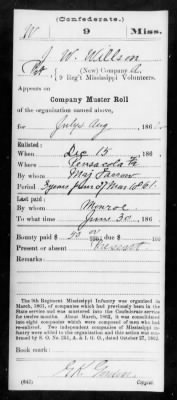 (Confederate.)
W 9 Miss.
J. W. Willson
Pvt, (New) Company A,
9 Reg't Mississippi Volunteers.
Appears on
Company Muster Roll
of the organization named above,
for July & Aug, 186
Enlisted:
When Dec 15, 186
Where Pensacola Fla
By whom Maj Farrow
Period 3 years from 27 Mar 1861
Last paid:
By whom Monroe
To what time June 30, 186
Bounty paid $ 50 ; due $ 100
Present or absent Present
Remarks:
The 9th Regiment Mississippi Infantry was organized in
March, 1861, of companies which had previously been in the
State service and was mustered into the Confederate service
for twelve months. About March, 1862, it was consolidated
into eight companies which were composed of men who had
re-enlisted. Two independent companies of Mississippi in-
fantry were added to the organization and this action was con-
firmed by S. O. No. 251, A. & I. G. O., dated October 27, 1862.
Book mark:
(642) Copyist.